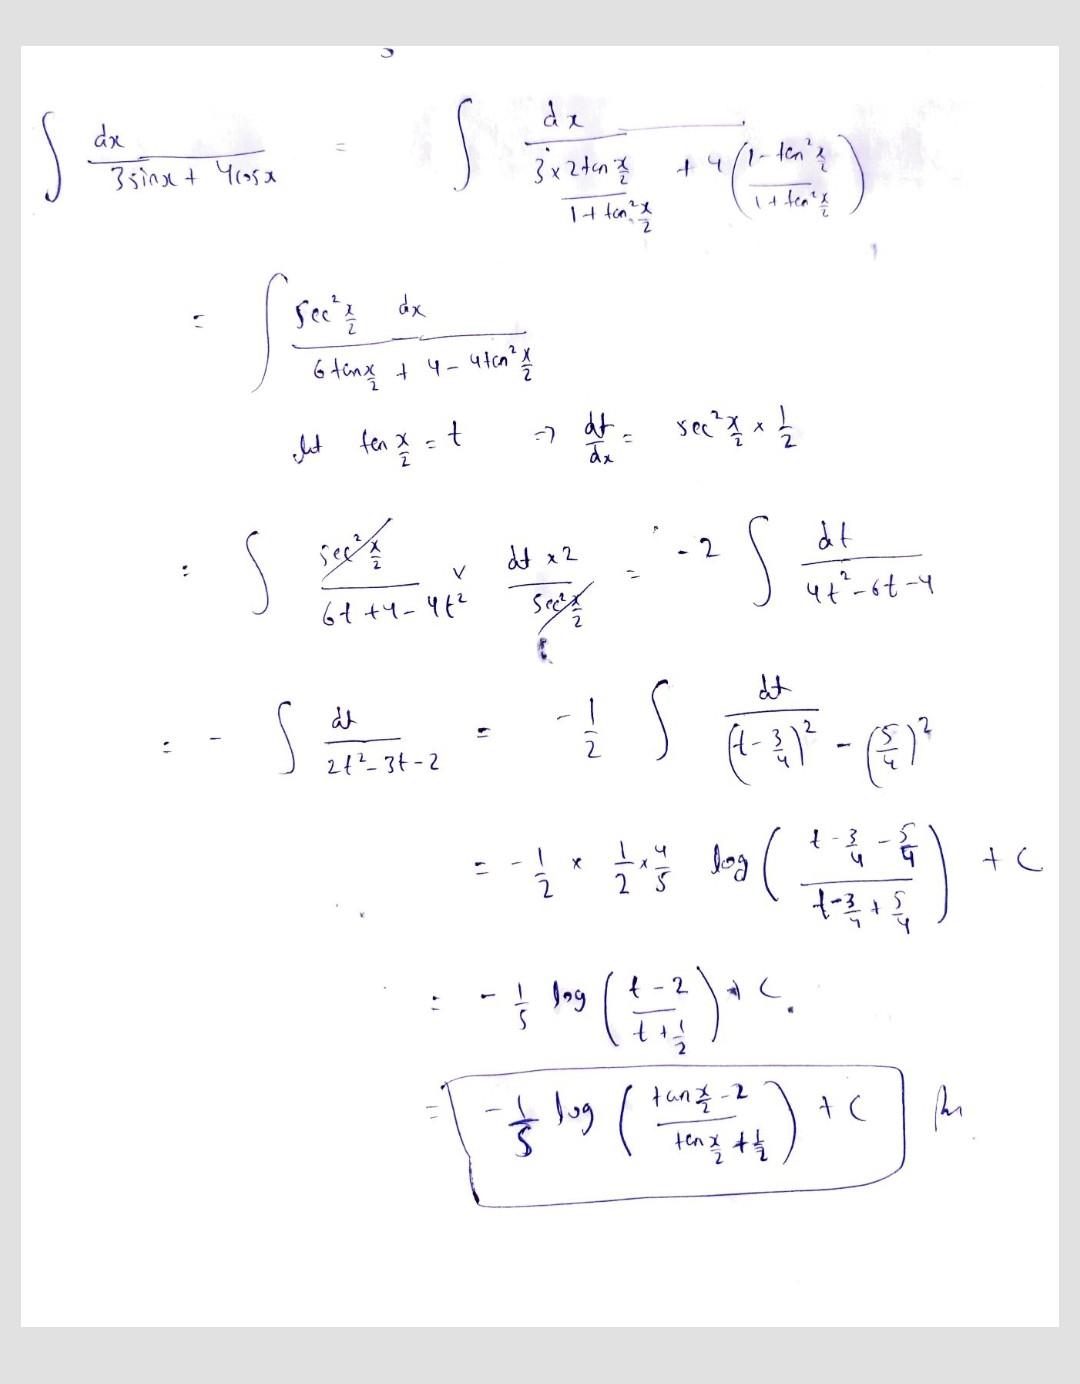 ∫ dx / (3sinx + 4cosx) = ∫ dx / (3×2tan x/2 / (1+tan² x/2) + 4((1-tan² x/2) / (1+tan² x/2)))
= ∫ sec² x/2 dx / (6tan x/2 + 4 - 4tan² x/2)
let tan x/2 = t ⇒ dt/dx = sec² x/2 × 1/2
= ∫ sec² x/2 / (6t+4-4t²) × dt×2 / sec² x/2 = -2 ∫ dt / (4t²-6t-4)
= - ∫ dt / (2t²-3t-2) = -1/2 ∫ dt / ((t-3/4)² - (5/4)²)
= -1/2 × 1/2 × 4/5 log((t-3/4-5/4) / (t-3/4+5/4)) + C
= -1/5 log((t-2) / (t+1/2)) + C.
= -1/5 log((tan x/2 - 2) / (tan x/2 + 1/2)) + C